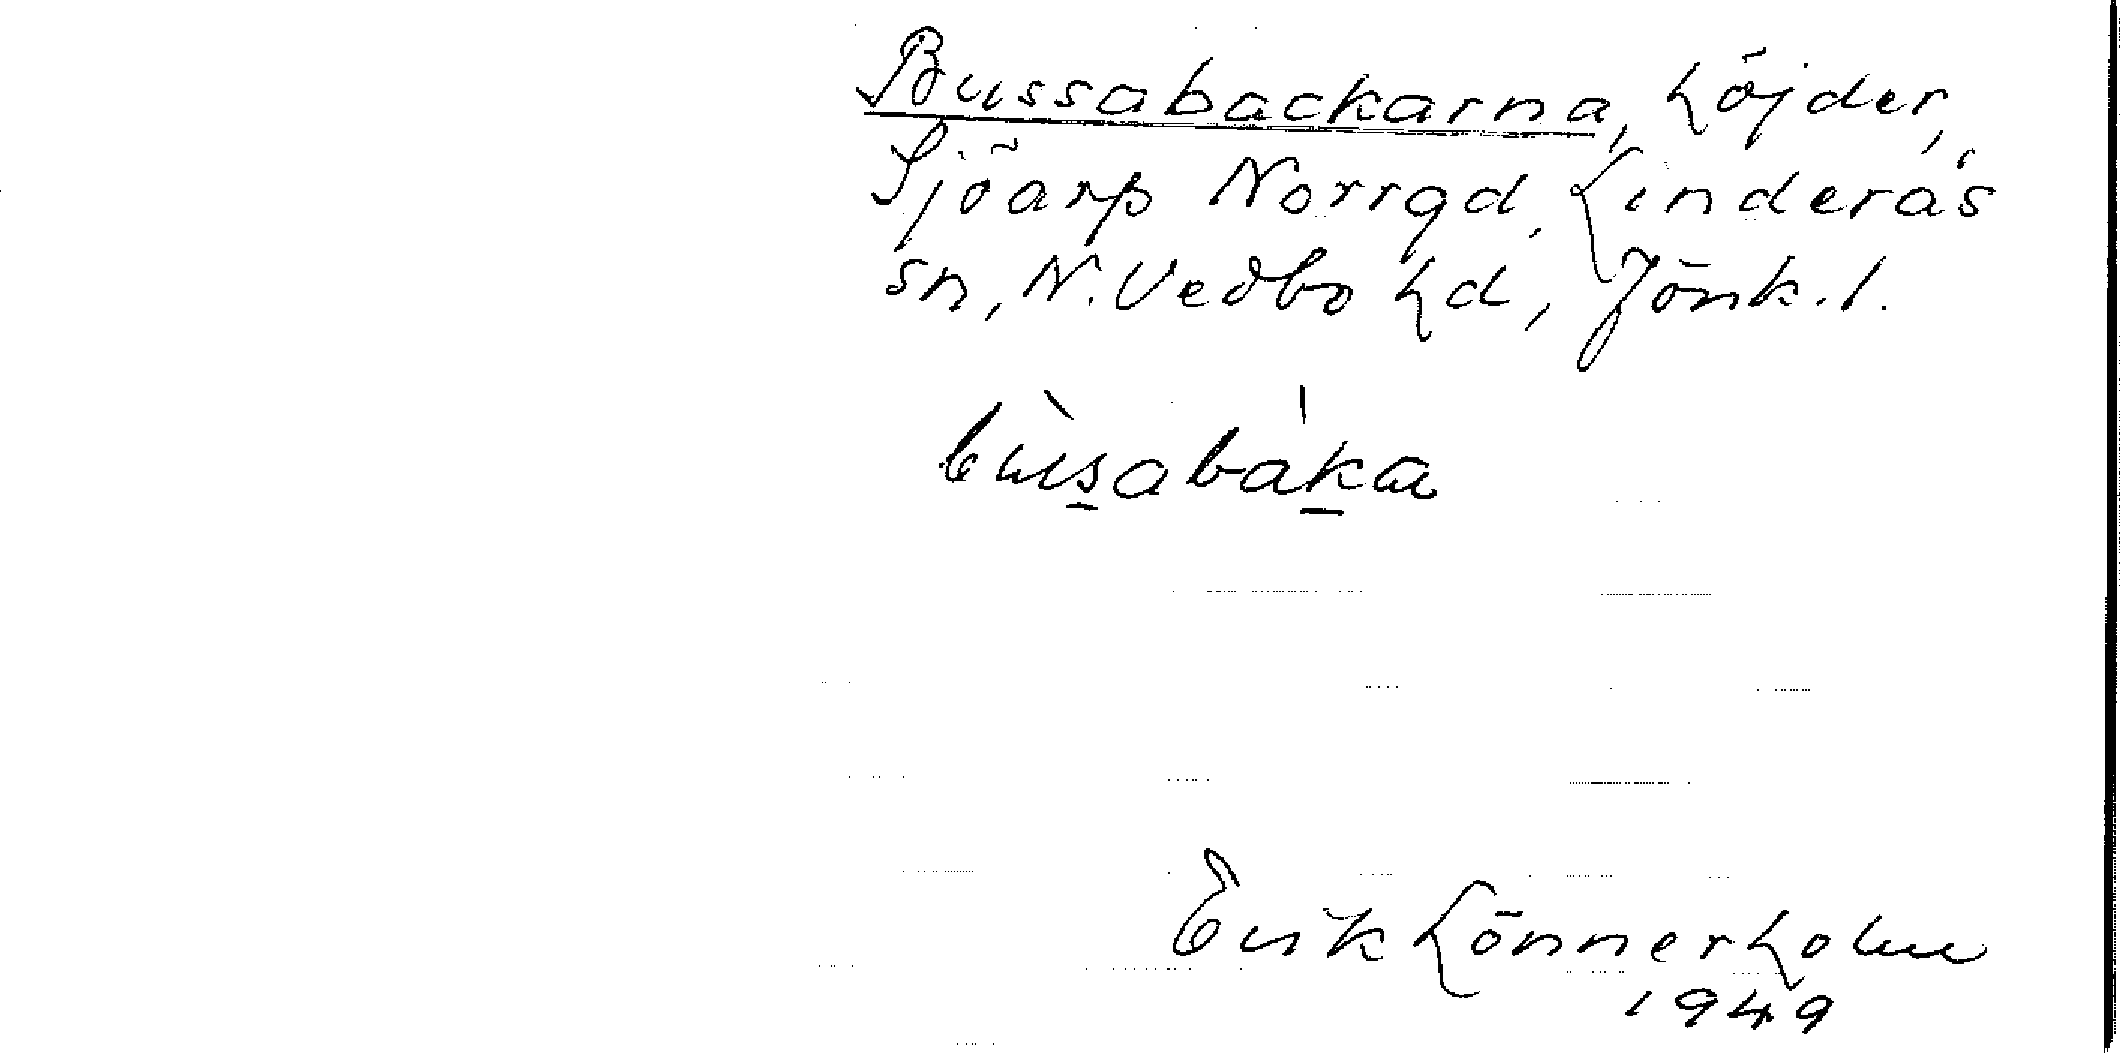 Bussabackarna, höjder,
Sjöarp Norrgd, Linderås
sn, N. Vedbo hd, Jönk. l.
bùsabáka
Erik Lönnerholm
1949